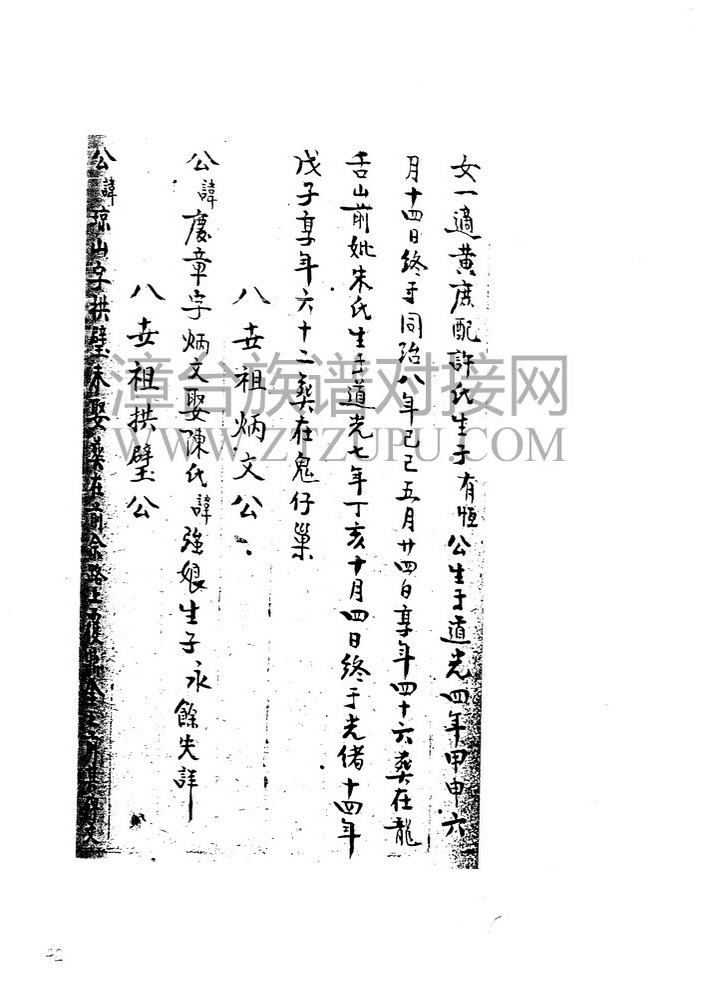 女一適黄庶配許氏生子有恒公生于道光四年甲申六
月十四日終于同治八年己巳五月廿四日享年四十六葬在龍
舌山前妣朱氏生于道光七年丁亥十月四日終于光緒十四年
戊子享年六十二葬在鬼仔巢
八世祖炳文公
公諱慶章字炳文娶陳氏諱強娘生子永餘失詳
八世祖拱璧公
公諱琼山字拱璧未娶葬在
漳台族谱对接网
WWW.ZTZUPU.COM
42